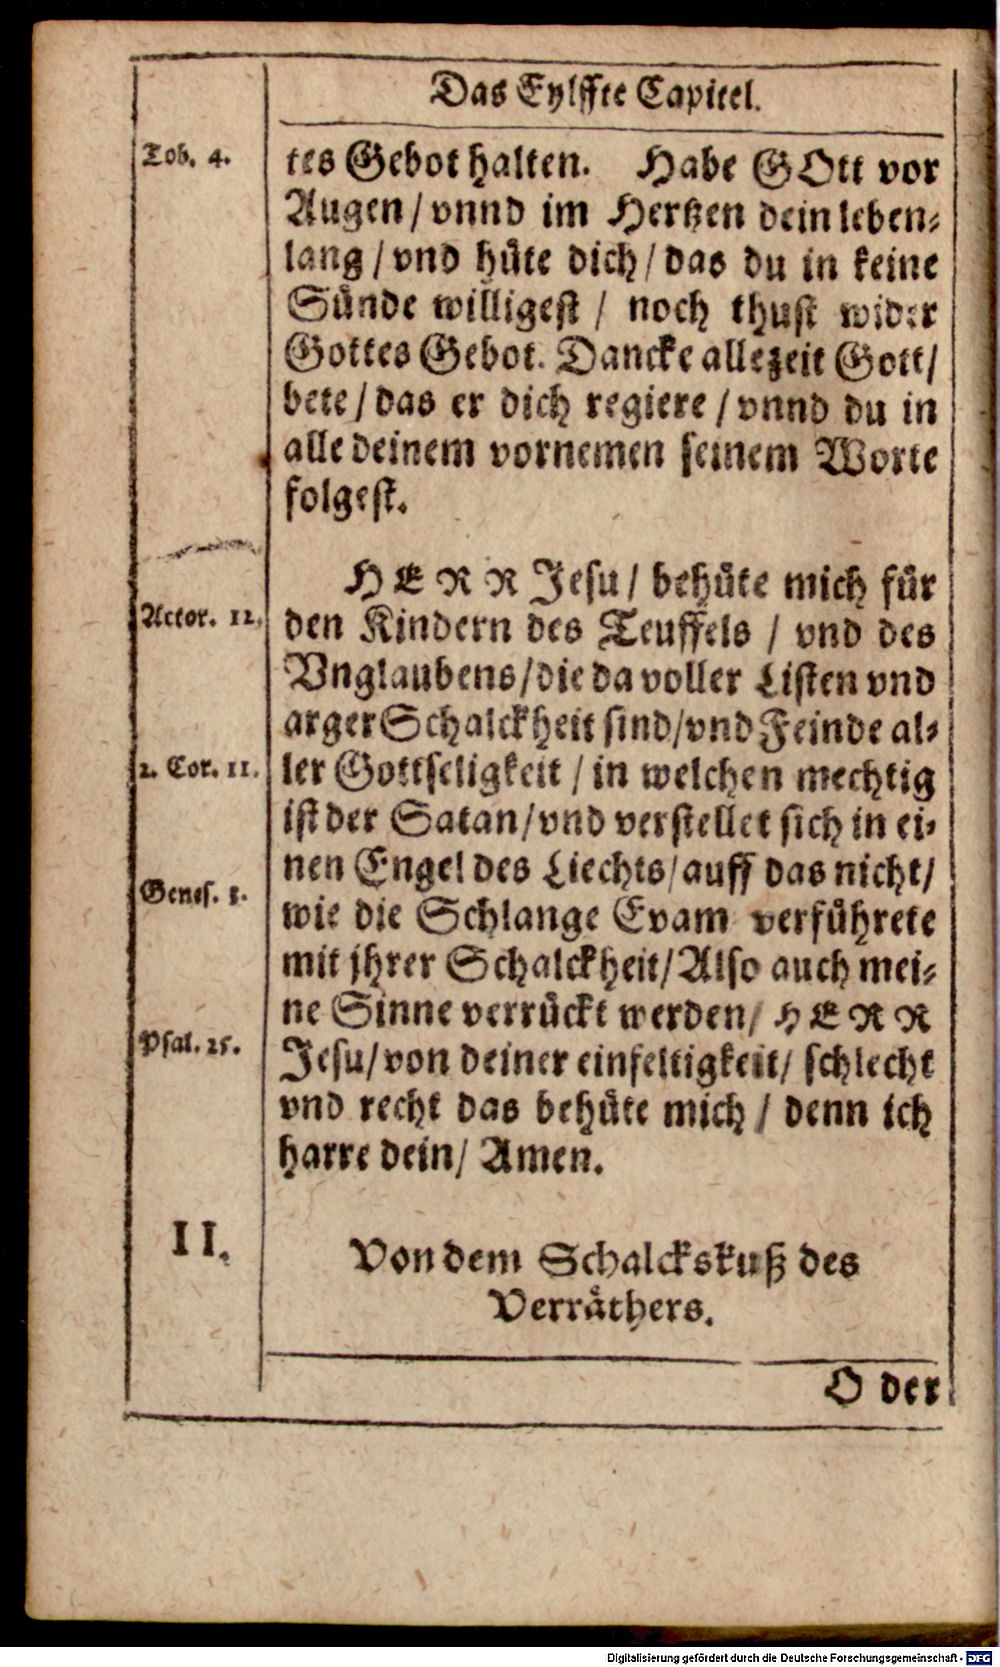 Das Eylffte Capitel.
Tob. 4.
tes Gebot halten. Habe GOtt vor
Augen / vnnd im Hertzen dein leben-
lang / vnd hüte dich / das du in keine
Sünde willigest / noch thust wider
Gottes Gebot. Dancke allezeit Gott /
bete / das er dich regiere / vnnd du in
alle deinem vornemen seinem Worte
folgest.
HERR Jesu / behüte mich für
Actor. 12.
den Kindern des Teuffels / vnd des
Vnglaubens / die da voller Listen vnd
arger Schalckheit sind / vnd Feinde al-
2. Cor. 11.
ler Gottseligkeit / in welchen mechtig
ist der Satan / vnd verstellet sich in ei-
nen Engel des Liechts / auff das nicht /
Genes. 3.
wie die Schlange Evam verführete
mit jhrer Schalckheit / Also auch mei-
ne Sinne verrückt werden / HERR
Psal. 25.
Jesu / von deiner einfeltigkeit / schlecht
vnd recht das behüte mich / denn ich
harre dein / Amen.
II.
Von dem Schalckskuß des
Verräthers.
O der
Digitalisierung gefördert durch die Deutsche Forschungsgemeinschaft - DFG